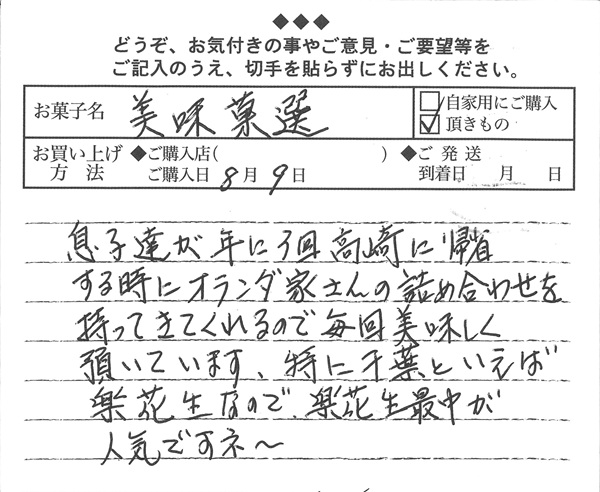 ◆◆◆
どうぞ、お気付きの事やご意見・ご要望等を
ご記入のうえ、切手を貼らずにお出しください。
お菓子名 美味菓選 □自家用にご購入
☑頂きもの
お買い上げ方法 ◆ご購入店( ) ◆ご発送
ご購入日 8月9日 到着日 月 日
息子達が年に3回高崎に帰省
する時にオランダ家さんの詰め合わせを
持ってきてくれるので毎回美味しく
頂いています、特に千葉といえば
楽花生なので、楽花生最中が
人気ですネ〜